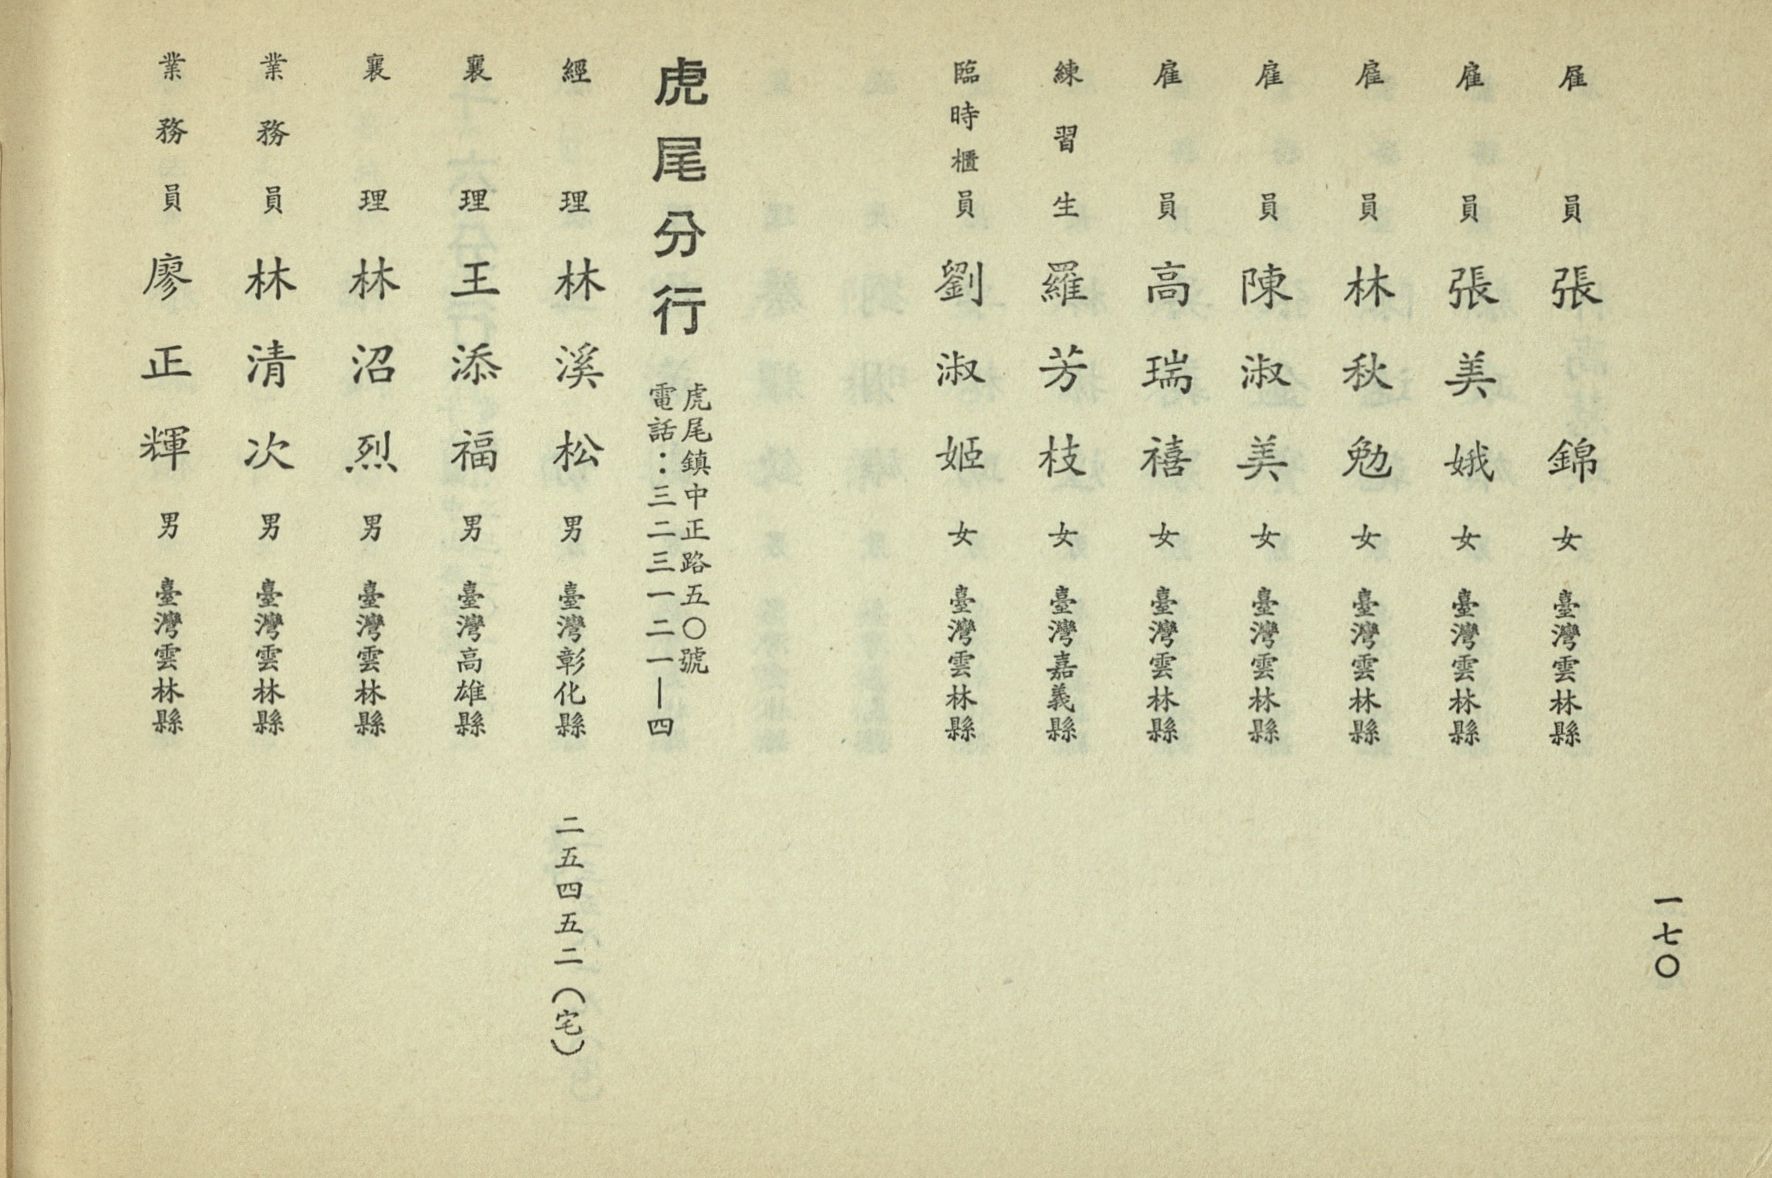 一七〇
雇員 張錦 女 臺灣雲林縣
雇員 張美娥 女 臺灣雲林縣
雇員 林秋勉 女 臺灣雲林縣
雇員 陳淑美 女 臺灣雲林縣
雇員 高瑞禧 女 臺灣雲林縣
練習生 羅芳枝 女 臺灣嘉義縣
臨時櫃員 劉淑姬 女 臺灣雲林縣
虎尾分行
虎尾鎮中正路五〇號
電話：三二三一二一—四
經理 林溪松 男 臺灣彰化縣 二五四五二（宅）
襄理 王添福 男 臺灣高雄縣
襄理 林沼烈 男 臺灣雲林縣
業務員 林清次 男 臺灣雲林縣
業務員 廖正輝 男 臺灣雲林縣